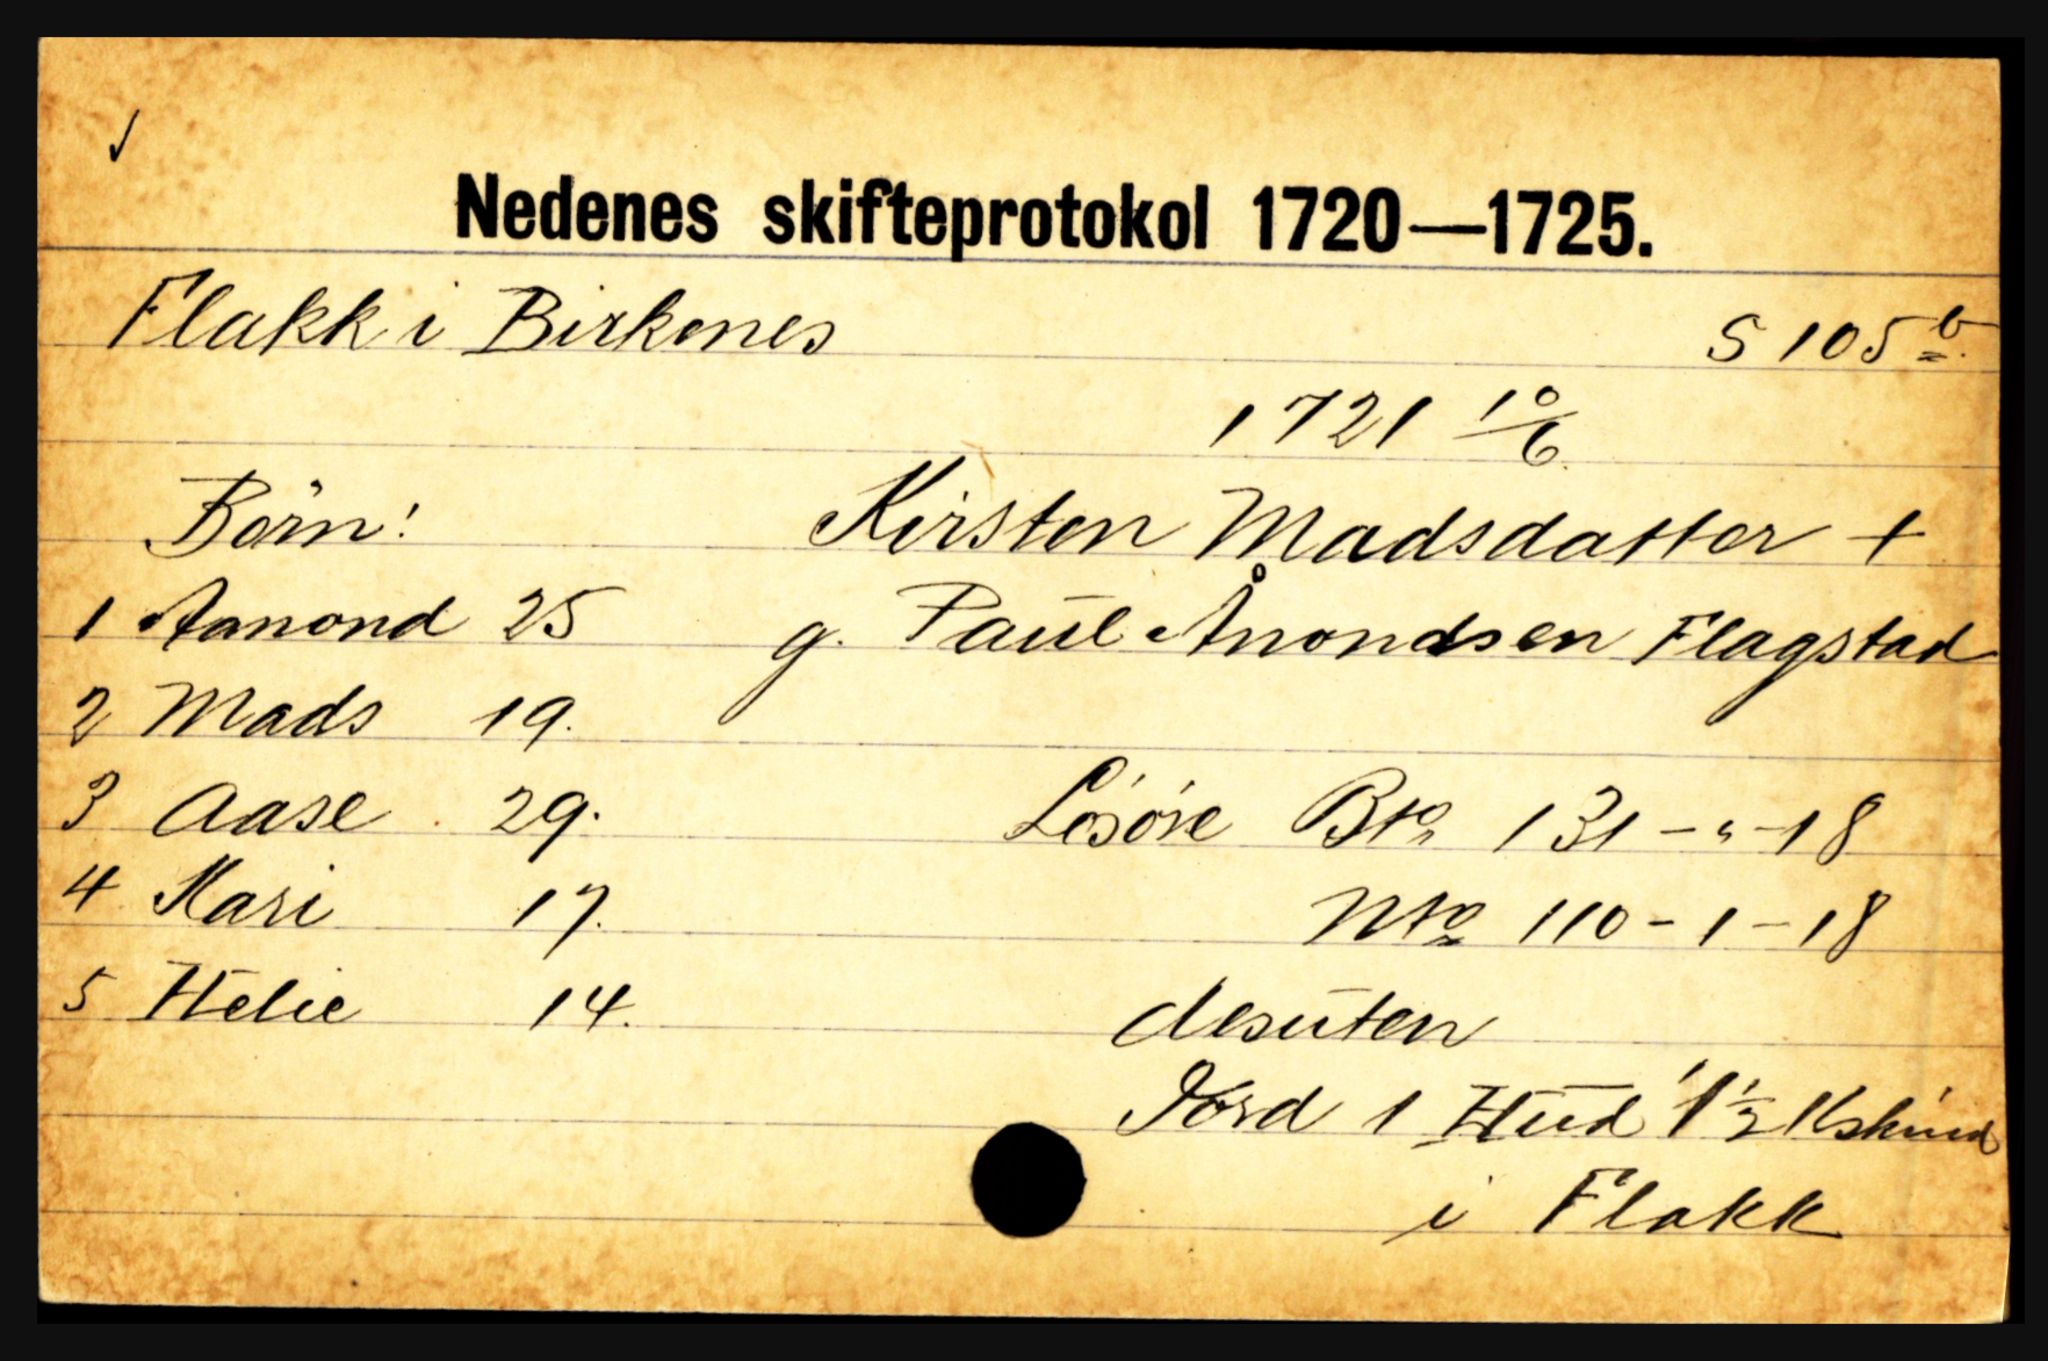 Nedenes skifteprotokol 1720—1725.
Flakk i Birkenes S 105 b.
1721 10/6.
Börn: Kirsten Madsdatter +
1 Aanond 25 g. Paul Ånondsen Flagstad
2 Mads 19.
3 Aase 29. Lösöre Bto 131 - " - 18
4 Kari 17. Nto 110 - 1 - 18
5 Helie 14. desuten
Jord 1 Hud 1 1/2 Kskind
i Flakk